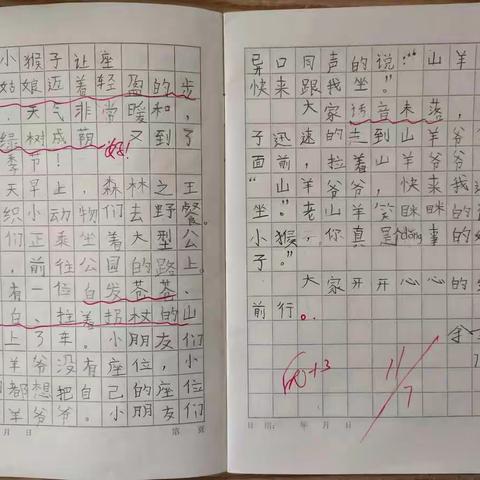 小猴子让座
姑娘迈着轻盈的步
，天气非常暖和，
绿树成荫，又到了
好！
季节！
天早上，森林之王
织小动物们去野餐。
们正乘坐着大型公
，前往公园的路上。
有一位白发苍苍、
白、拄着拐杖的山
上了车。小朋友们
羊爷没有座位，小
都想把自己的座位
羊爷爷。小朋友们
月 日
第 页
异口同声的说：“山羊
快来跟我坐。”
大家话音未落，
子迅速的走到山羊爷
面前，拉着山羊爷爷，
“山羊爷爷，快来我
坐。”老山羊笑眯眯的
小猴，你真是个dǒng事的
子。”
大家开开心心的
前行。
+3
11/7
日期： 年 月 日